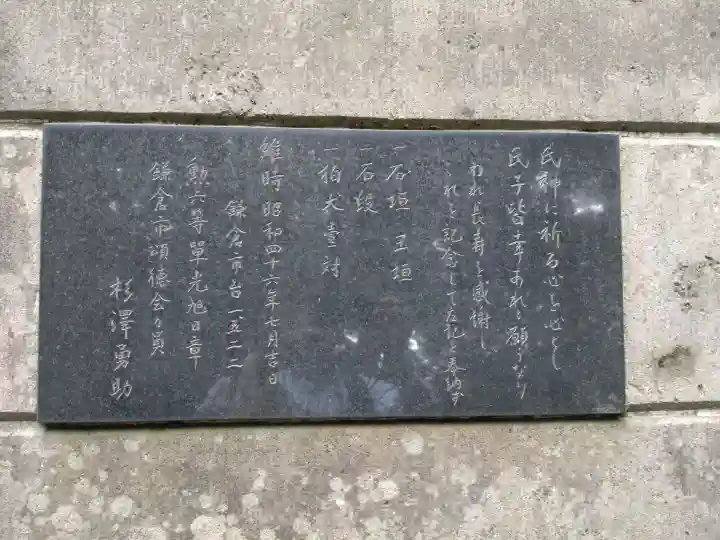 氏神に祈る心を心とし
氏子皆幸あれと願うなり
われ長寿を感謝し
これを記念して左記を奉納す
一石垣 玉垣
一石段
一狛犬臺対
維時昭和四十六年七月吉日
鎌倉市台一五二二
勲六等單光旭日章
鎌倉市頌徳会々員
杉澤勇助